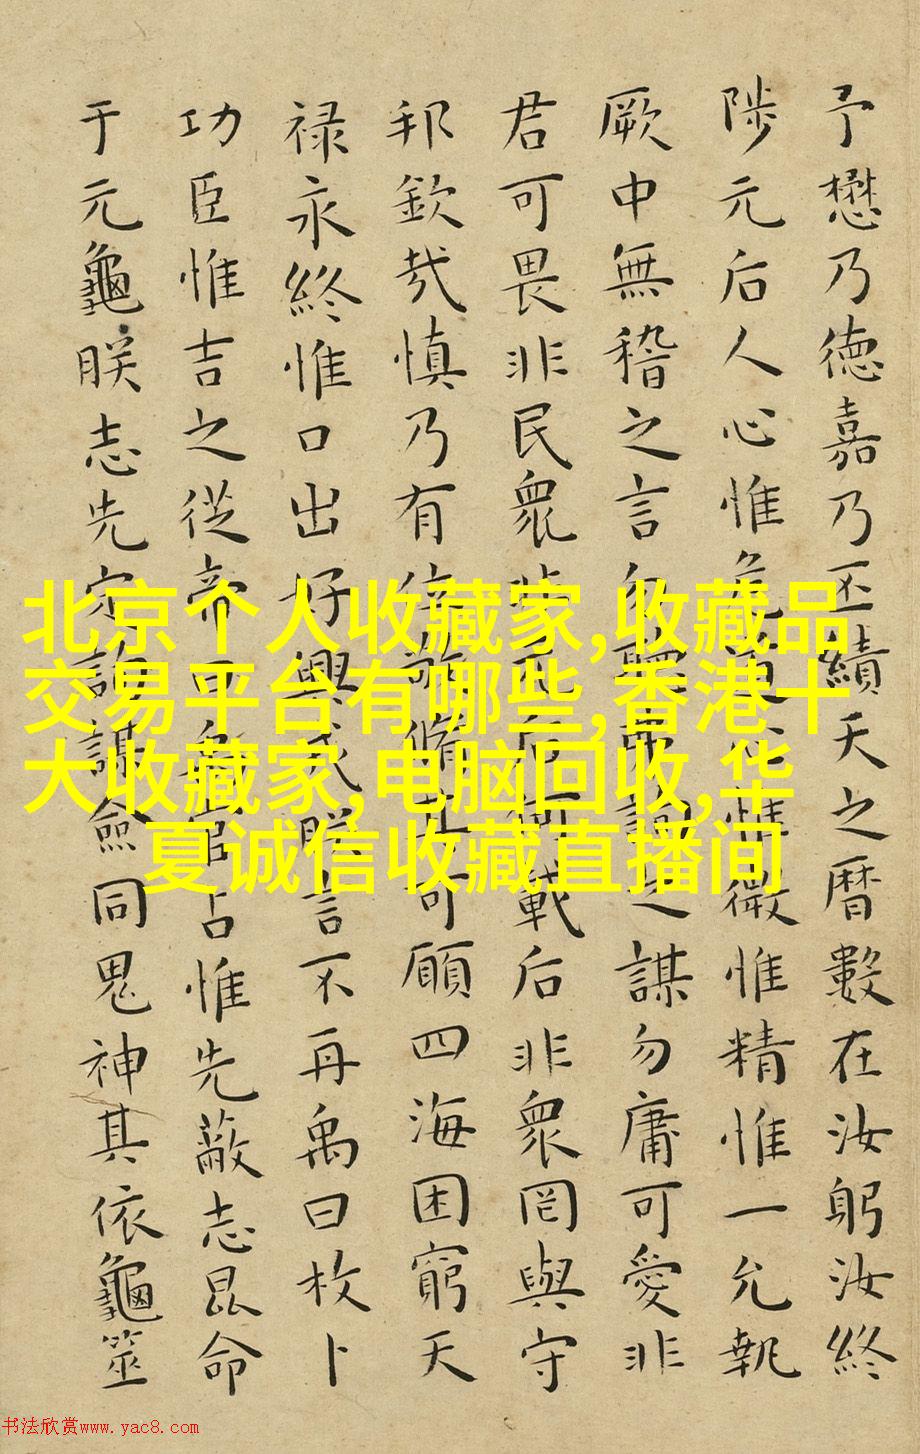 予懋乃德嘉乃丕績天之曆數在汝躬汝終
陟元后人心惟危道心惟微惟精惟一允執
厥中無稽之言勿聽弗詢之謀勿庸可愛非
君可畏非民衆非元后何戴后非衆罔與守
邦欽哉慎乃有位敬脩其可願四海困窮天
禄永終惟口出好興戎朕言不再禹曰枚卜
功臣惟吉之從帝曰禹官占惟先蔽志昆命
于元龜朕志先定詢謀僉同鬼神其依龜筮
北京个人收藏家,收藏品
交易平台有哪些,香港十
大收藏家,电脑回收,华
夏诚信收藏直播间
书法欣赏www.yac8.com